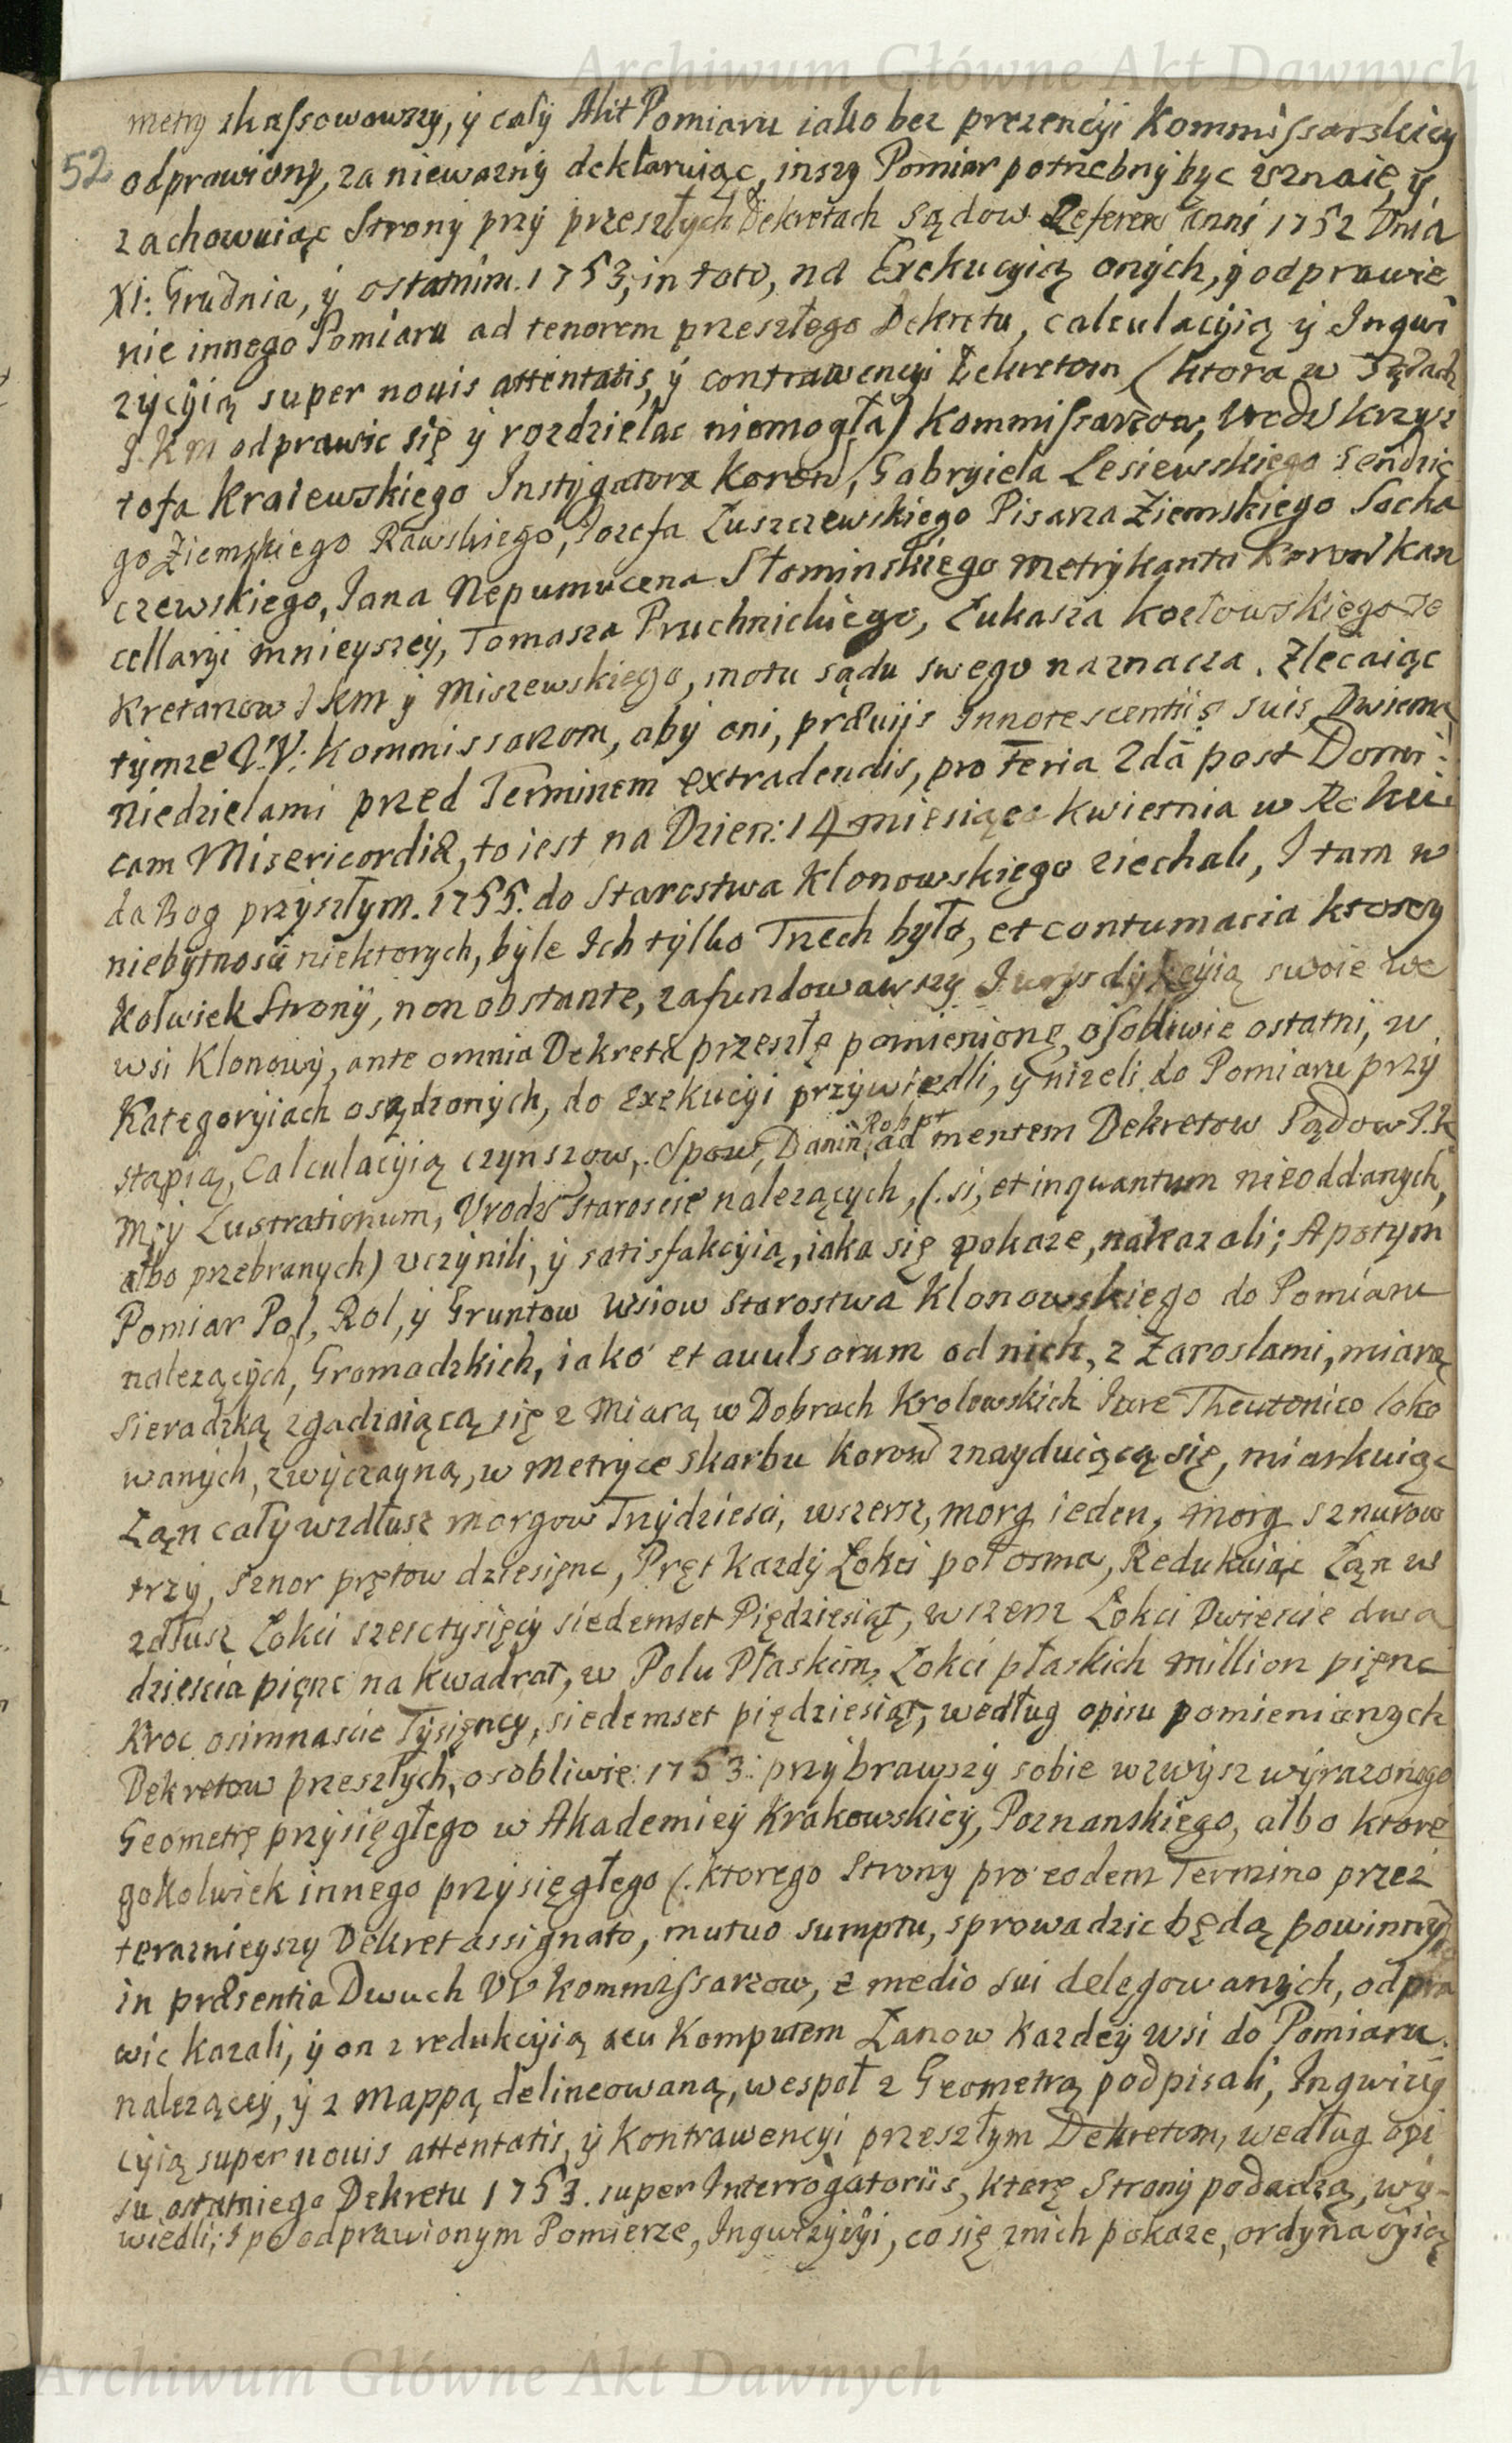 Archiwum Główne Akt Dawnych
metry skassowowszy, ÿ całÿ Akt Pomiaru iako bez prezencÿi Kommissarskieÿ
52
odprawionÿ, za nieważnÿ deklaruiąc, inszy Pomiar potrzebnÿ byc uznaie, ÿ
zachowuiąc Stronÿ przÿ przeszłÿch Dekretach Sądow Referen anni 1752 Dnia
XI: Grudnia, ÿ ostatnim 1753, in toto, na Exekucÿią onÿch, ÿ odprawie
nie innego Pomiaru ad tenorem przeszłego Dekretu, calculacÿią ÿ Inqwi
zÿcÿią super nouis attentatis, ÿ contrawencÿi Dekretom (ktora w Sądach
J.K.M odprawic się ÿ rozdzielac niemogła) Kommissarzow, Urodz Krzÿsz
tofa Kraiewskiego Instÿgatora Koron, Gabrÿiela Lesiewskiego Sendzie
go Ziemskiego Rawskiego, Jozefa Łuszczewskiego Pisarza Ziemskiego Socha
czewskiego, Jana Nepumucena Słominskiego Metrÿkanta Koron Kan
cellarÿi mnieÿszeÿ, Tomasza Pruchnickiego, Łukasza Kozłowskiego Se
kretarzow JKM ÿ Miszewskiego, motu sądu swego naznacza. Zlecaiąc
tÿmze U.V: Kommissarzom, abÿ oni, præuijs Innotescentiis suis, Dwiema
Niedzielami przed Terminem extradendis, pro Feria 2dâ post Domi:
cam Misericordiæ, to iest na Dzien: 14 miesiąca Kwietnia w Roku
da Bog przÿszłÿm. 1755. do Starostwa Klonowskiego ziechali, I tam w
niebÿtnosci niektorych, bÿle Ich tÿlko Trzech bÿło, et contumacia ktorey
kolwiek Stronÿ, non obstante, zafundowawszy Jurÿsdÿkcÿią swoie we
wsi Klonowÿ, ante omnia Dekreta przeszłę pomienionę, osobliwie ostatni, w
Kategorÿiach osądzonÿch, do exekucÿi przÿwiedli, ÿ nizeli do Pomiaru przÿ
stąpią, Calculacÿią czÿnszow, Spow, Danin, Robot ad mentem Dekretow Sądow J.K
M; ÿ Lustrationum, Urodz Staroscie nalezącÿch, (. si, et inquantum nieoddanÿch,
albo przebranÿch) uczÿnili, ÿ satisfakcÿią, iaka się pokaze, nakazali; A potÿm
Pomiar Pol, Rol, ÿ Gruntow Wsiow Starostwa Klonowskiego do Pomiaru
nalezącÿch, Gromadzkich, iako et auulsorum od nich, z Zaroslami, miarą
Sieradzką zgadzaiącą się z Miarą w Dobrach Krolewskich Jure Theutonico loko
wanÿch, zwÿczaÿną, w Metrÿce skarbu Koron znayduiącą się, miarkuiąc
Łan całÿ wzdłusz morgow Trzÿdziesci, wszersz, morg ieden, morg sznurow
trzÿ, sznor prętow dziesięnc, Pręt kazdÿ Łokci poł osma, Redukuiąc Łan w
zdłusz Łokci szesctysięcÿ siedemset Piędziesiąt, wszersz Łokci Dwiescie dwa
dziescia pięnc na kwadrat, w Polu Płaskim, Łokci płaskich million pięnc
kroc osimnascie Tÿsięncy, siedemset piędziesiąt, według opisu pomienianych
Dekretow przeszłÿch, osobliwie: 1753: przÿbrawszÿ sobie wzwÿsz wÿrazonego
Geometrę przÿsięgłego w Akademieÿ Krakowskieÿ, Poznanskiego, albo ktore
gokolwiek innego przÿsięgłego (. ktorego Stronÿ pro eodem Termino przez
teraznieyszÿ Dekret assignato, mutuo sumptu, sprowadzic będą powinny)
in præsentia Dwuch UV Kommissarzow, e medio sui delegowanÿch, odpra
wic kazali, ÿ on z redukcÿią seu Komputem Łanow kazdeÿ wsi do Pomiaru
nalezącey, ÿ z Mappą delineowaną, wespoł z Geometrą podpisali, Inqwizÿ
cÿią super nouis attentatis, ÿ Kontrawencÿi przeszłÿm Dekretom, według opi
su ostatniego Dekretu 1753. super Interrogatoriis, ktorę Stronÿ podadzą, wÿ-
wiedli; I po odprawionym Pomierze, Inqwizÿcÿi, co się z nich pokaze, ordynacÿią
Archiwum Główne Akt Dawnych